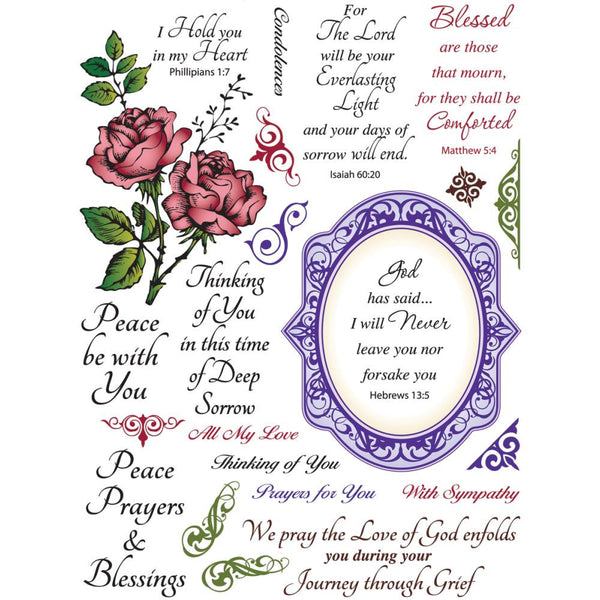 I Hold you
in my Heart
Phillipians 1:7
Condolences
For
The Lord
will be your
Everlasting
Light
and your days of
sorrow will end.
Isaiah 60:20
Blessed
are those
that mourn,
for they shall be
Comforted
Matthew 5:4
God
has said...
I will Never
leave you nor
forsake you
Hebrews 13:5
Thinking
of You
in this time
of Deep
Sorrow
Peace
be with
You
All My Love
Thinking of You
Prayers for You
With Sympathy
Peace
Prayers
&
Blessings
We pray the Love of God enfolds
you during your
Journey through Grief